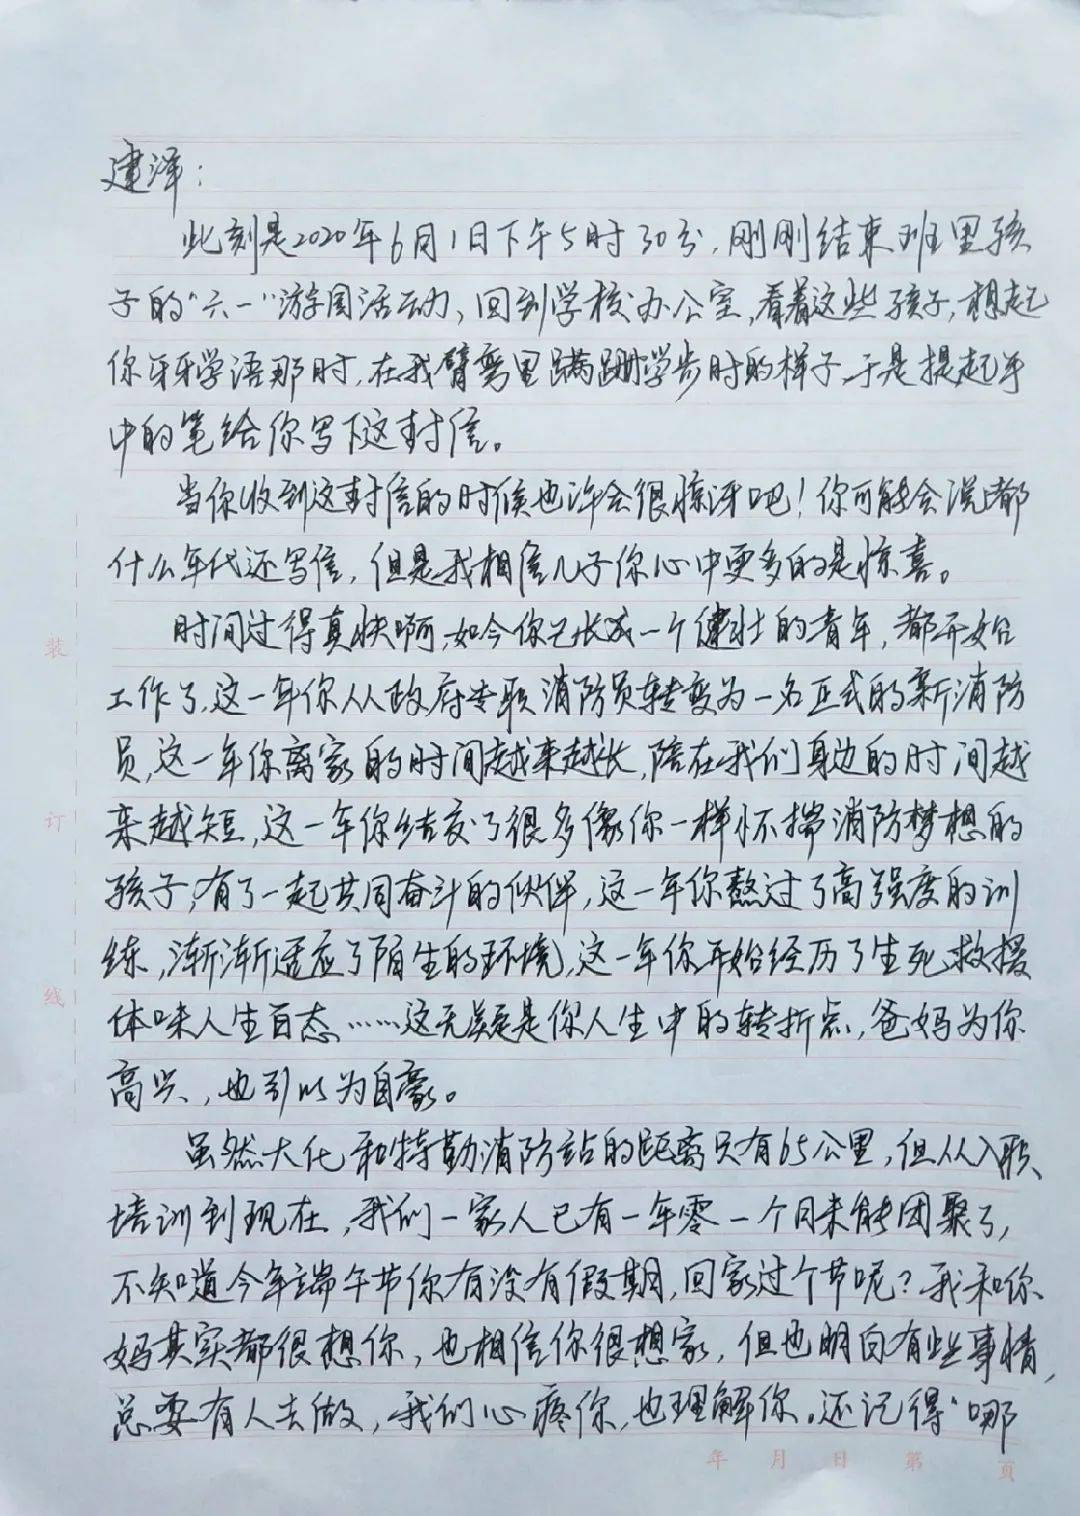 建泽：
此刻是2020年6月1日下午5时30分，刚刚结束班里孩
子的“六一”游园活动、回到学校办公室，看着这些孩子，想起
你牙牙学语那时，在我臂弯里蹒跚学步时的样子，于是提起手
中的笔给你写下这封信。
当你收到这封信的时候也许会很惊讶吧！你可能会说都
什么年代还写信，但是我相信儿子你心中更多的是惊喜。
时间过得真快啊，如今你已长成一个健壮的青年，都开始
工作了，这一年你从政府专职消防员转变为一名正式的新消防
员，这一年你离家的时间越来越长，陪在我们身边的时间越
来越短，这一年你结交了很多像你一样怀揣消防梦想的
孩子，有了一起共同奋斗的伙伴，这一年你熬过了高强度的训
练，渐渐适应了陌生的环境，这一年你开始经历了生死救援
体味人生百态……这无疑是你人生中的转折点，爸妈为你
高兴、也引以为自豪。
虽然大化和特勤消防站的距离只有65公里，但从入职、
培训到现在，我们一家人已有一年零一个月未能团聚了，
不知道今年端午节你有没有假期，回家过个节呢？我和你
妈其实都很想你，也相信你很想家，但也明白有些事情，
总要有人去做，我们心疼你，也理解你。还记得“哪
装
订
线
年 月 日 第 页